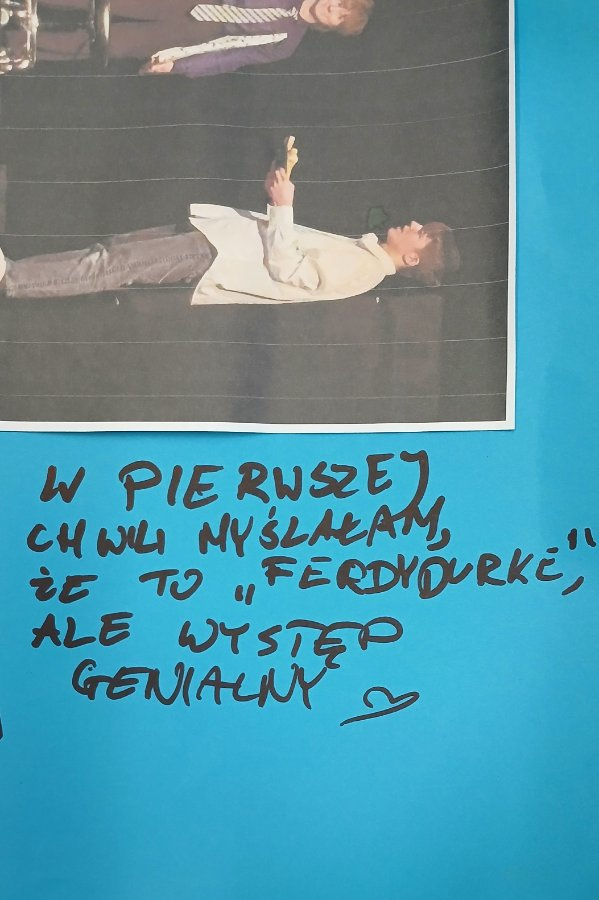 W PIERWSZEJ
CHWILI MYŚLAŁAM,
ŻE TO „FERDYDURKE”,
ALE WYSTĘP
GENIALNY